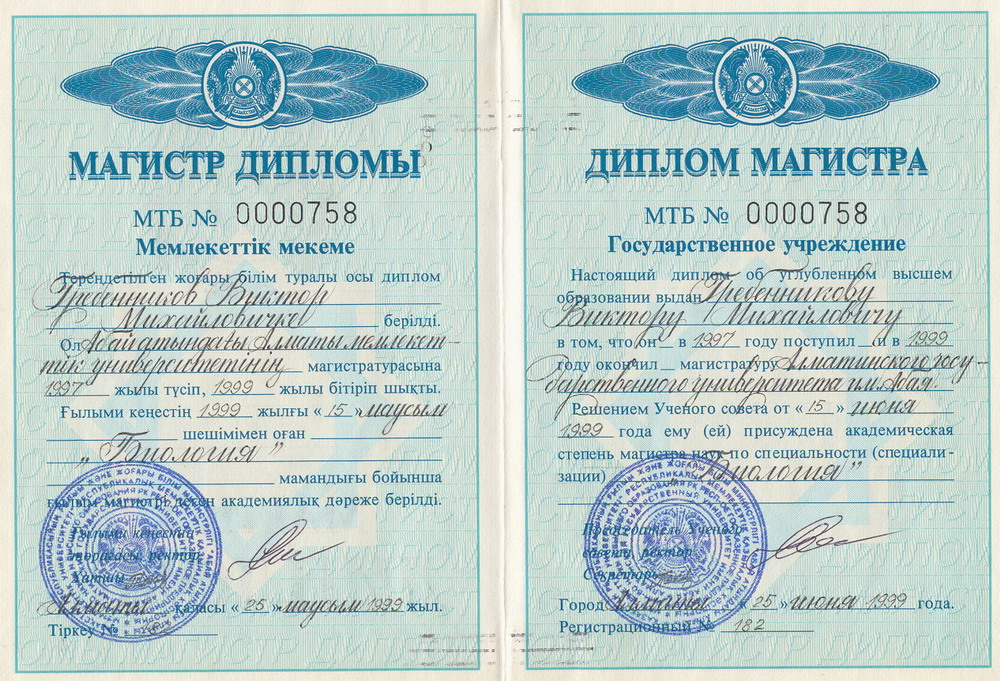 МАГИСТР ДИПЛОМЫ
МТБ № 0000758
Мемлекеттік мекеме
Тереңдетілген жоғары білім туралы осы диплом
Гребенников Виктор
Михайловичке берілді.
Ол Абай атындағы Алматы мемлекет-
тік университетінің магистратурасына
1997 жылы түсіп, 1999 жылы бітіріп шықты.
Ғылыми кеңестің 1999 жылғы «15» маусым
шешімімен оған
„Биология"
мамандығы бойынша
ғылым магистрі деген академиялық дәреже берілді.
Ғылыми кеңестің
төрағасы, ректор
Хатшы
Алматы қаласы «25» маусым 1999 жыл.
Тіркеу № 182
ДИПЛОМ МАГИСТРА
МТБ № 0000758
Государственное учреждение
Настоящий диплом об углубленном высшем
образовании выдан Гребенникову
Виктору Михайловичу
в том, что он в 1997 году поступил (и в 1999
году окончил магистратуру Алматинского госу-
дарственного университета им. Абая.
Решением Ученого совета от «15» июня
1999 года ему (ей) присуждена академическая
степень магистра наук по специальности (специали-
зации) „Биология"
Председатель Ученого
совета, ректор
Секретарь
Город Алматы «25» июня 1999 года.
Регистрационный № 182